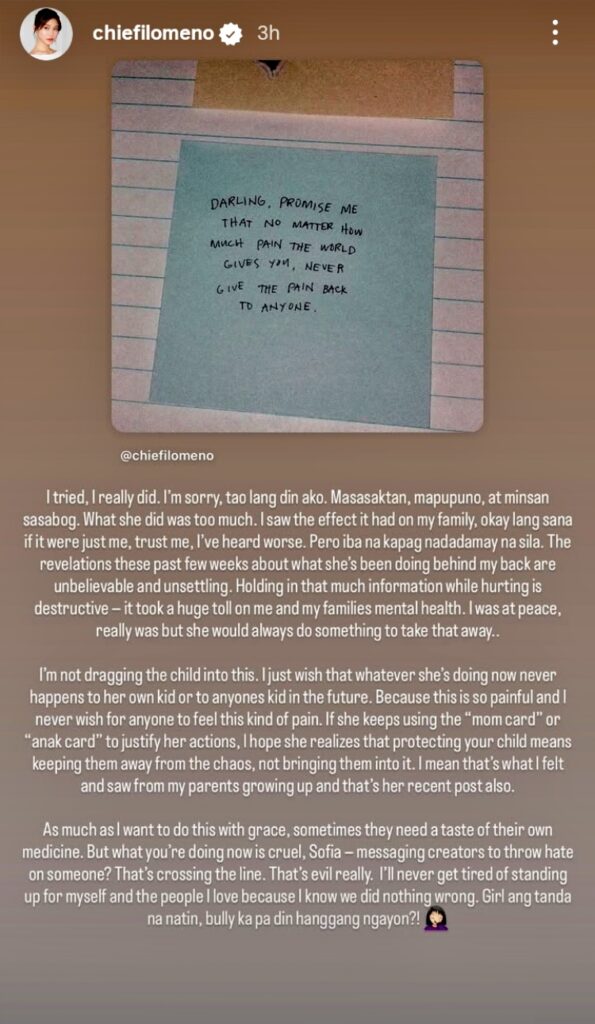 chiefilomeno 3h
DARLING, PROMISE ME
THAT NO MATTER HOW
MUCH PAIN THE WORLD
GIVES YOU, NEVER
GIVE THE PAIN BACK
TO ANYONE.
@chiefilomeno
I tried, I really did. I'm sorry, tao lang din ako. Masasaktan, mapupuno, at minsan
sasabog. What she did was too much. I saw the effect it had on my family, okay lang sana
if it were just me, trust me, I've heard worse. Pero iba na kapag nadadamay na sila. The
revelations these past few weeks about what she's been doing behind my back are
unbelievable and unsettling. Holding in that much information while hurting is
destructive – it took a huge toll on me and my families mental health. I was at peace,
really was but she would always do something to take that away..
I'm not dragging the child into this. I just wish that whatever she's doing now never
happens to her own kid or to anyones kid in the future. Because this is so painful and I
never wish for anyone to feel this kind of pain. If she keeps using the “mom card” or
“anak card” to justify her actions, I hope she realizes that protecting your child means
keeping them away from the chaos, not bringing them into it. I mean that's what I felt
and saw from my parents growing up and that's her recent post also.
As much as I want to do this with grace, sometimes they need a taste of their own
medicine. But what you're doing now is cruel, Sofia – messaging creators to throw hate
on someone? That's crossing the line. That's evil really. I'll never get tired of standing
up for myself and the people I love because I know we did nothing wrong. Girl ang tanda
na natin, bully ka pa din hanggang ngayon?! 🤦🏻‍♀️